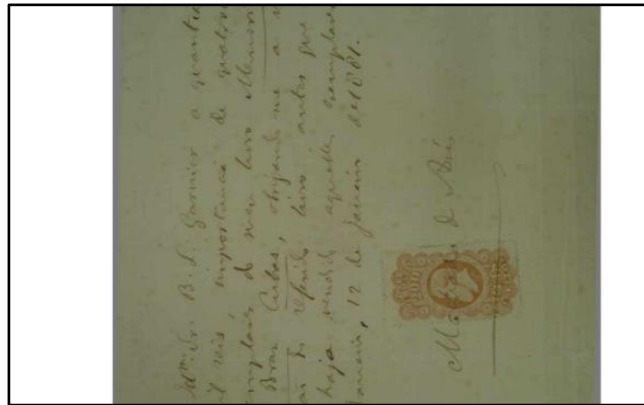 Illmo. Sr. B. L. Garnier a quantia
il reis importancia de
emplares do meu livro Memor
Braz Cubas, obrigando me a n
do referido livro antes que
haja vendido aquelles exemplare
Janeiro, 12 de Janeiro de 1881.
Machado de Assi